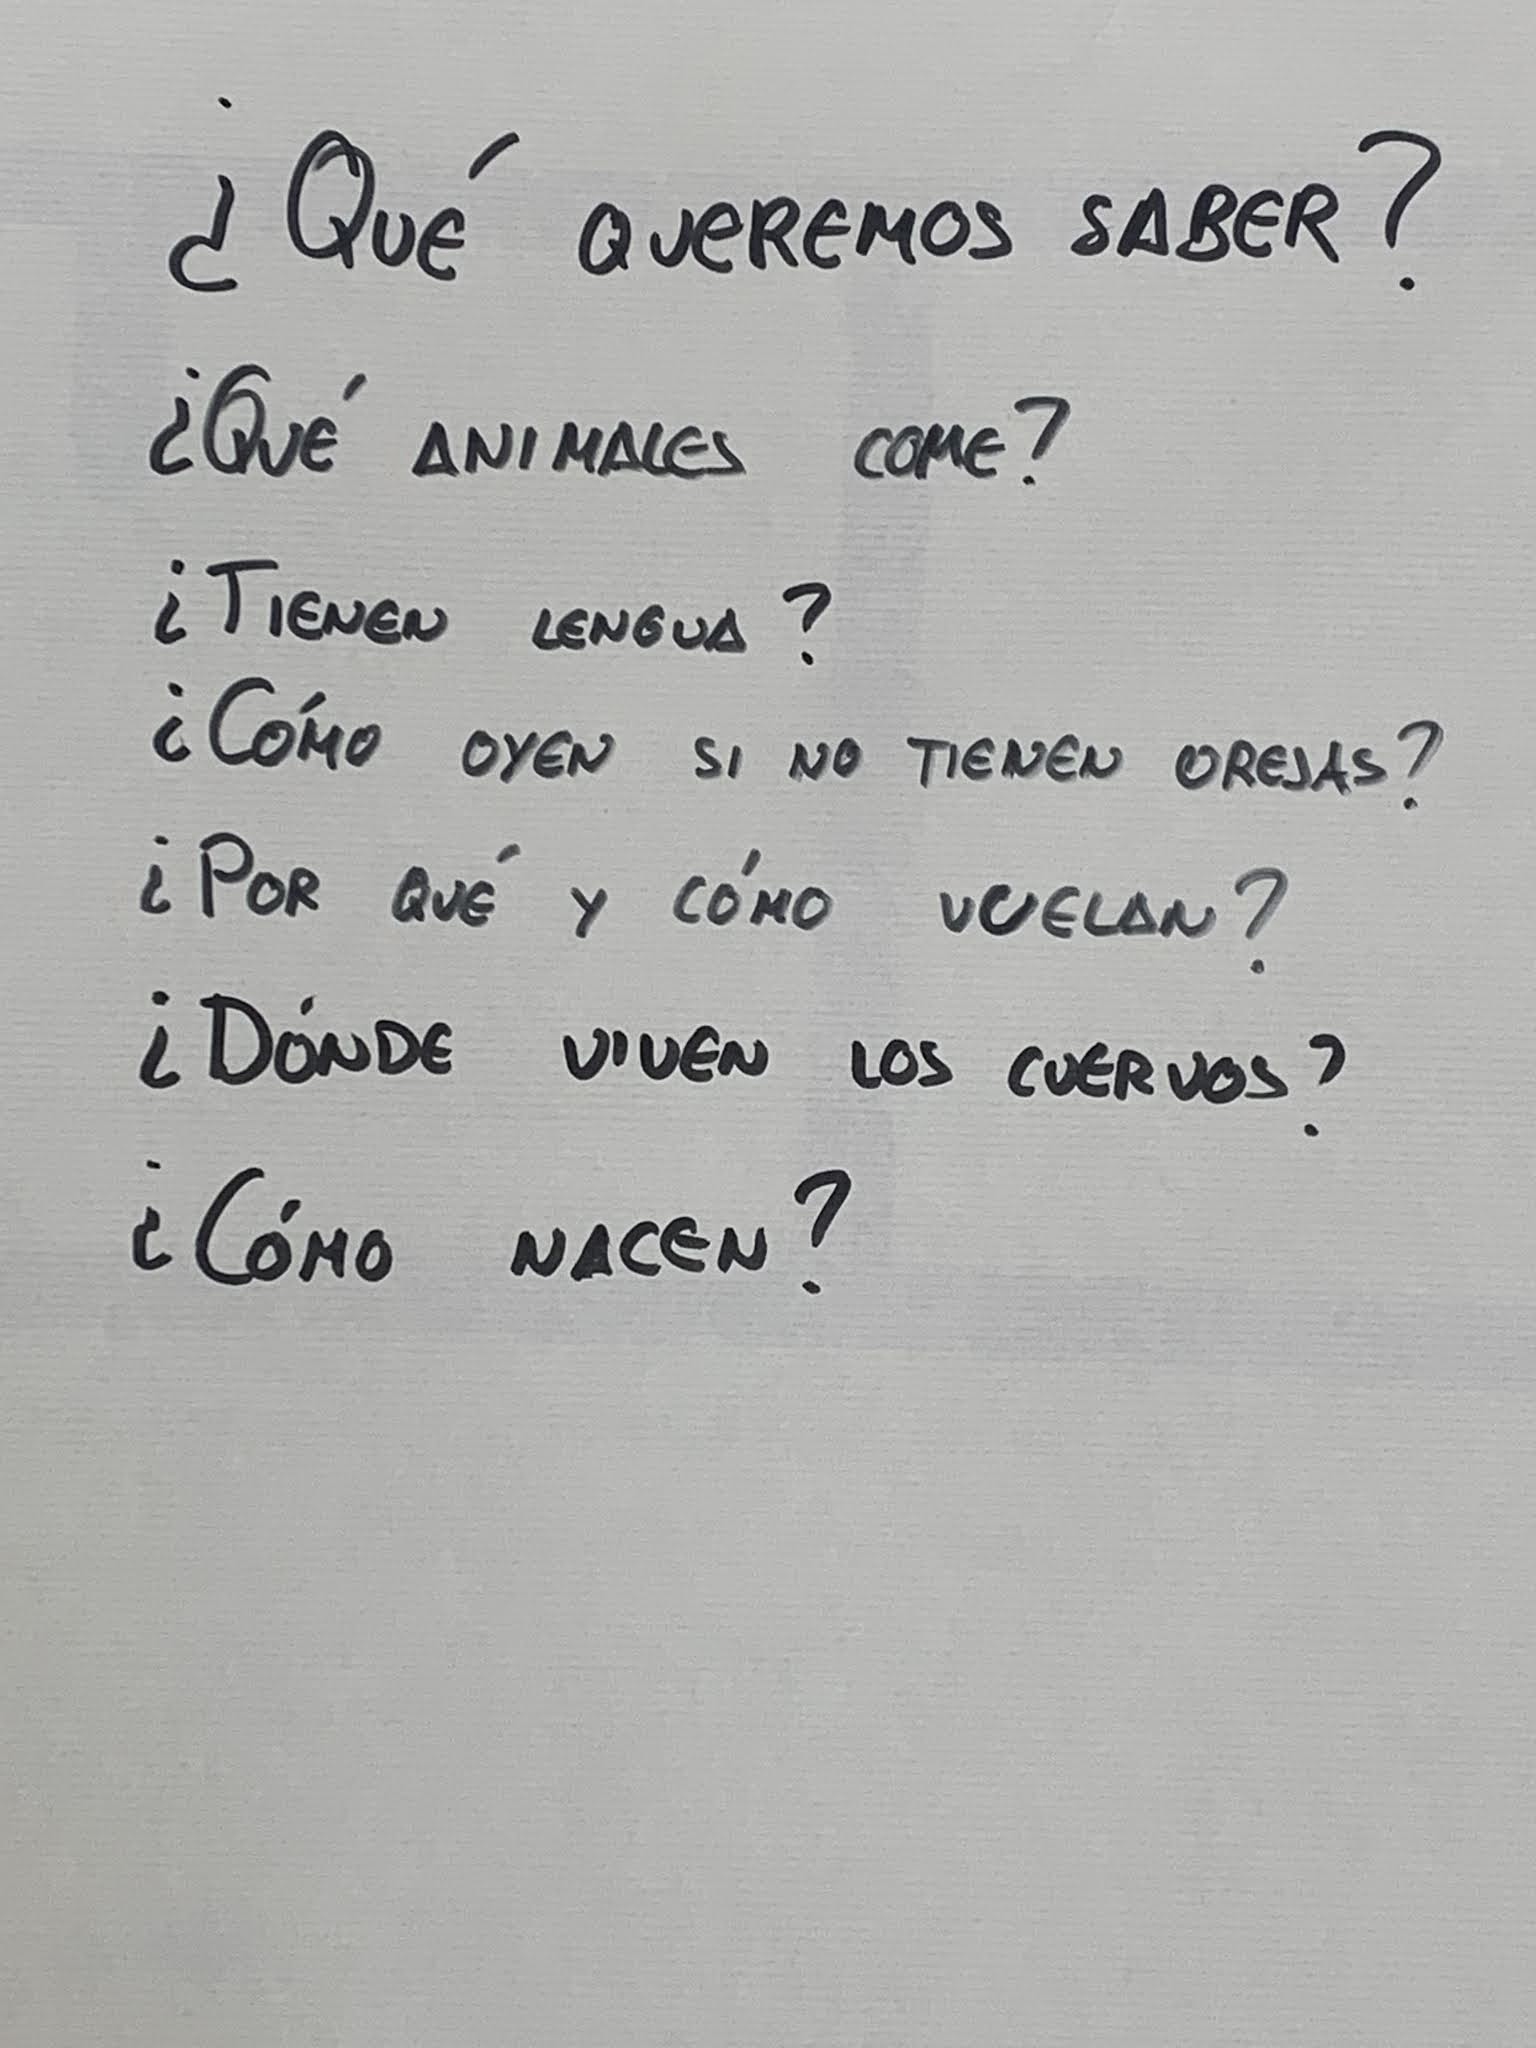 ¿Qué queremos saber?
¿Qué animales come?
¿Tienen lengua?
¿Cómo oyen si no tienen orejas?
¿Por qué y cómo vuelan?
¿Dónde viven los cuervos?
¿Cómo nacen?